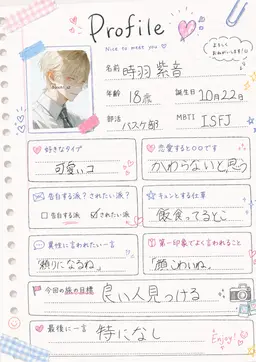 Profile
Nice to meet you
よろしくおねがいします!
名前 時羽 紫音
年齢 18歳 誕生日 10月22日
部活 バスケ部 MBTI ISFJ
好きなタイプ
可愛いコ
恋愛すると○○です
かわらないと思う
告白する派？されたい派？
告白する派 されたい派
キュンとする仕草
飯食ってるとこ
異性に言われたい一言
「頼りになるね。」
第一印象でよく言われること
「顔こわいね。」
今回の旅の目標
良い人見つける
Enjoy!
最後に一言
特になし